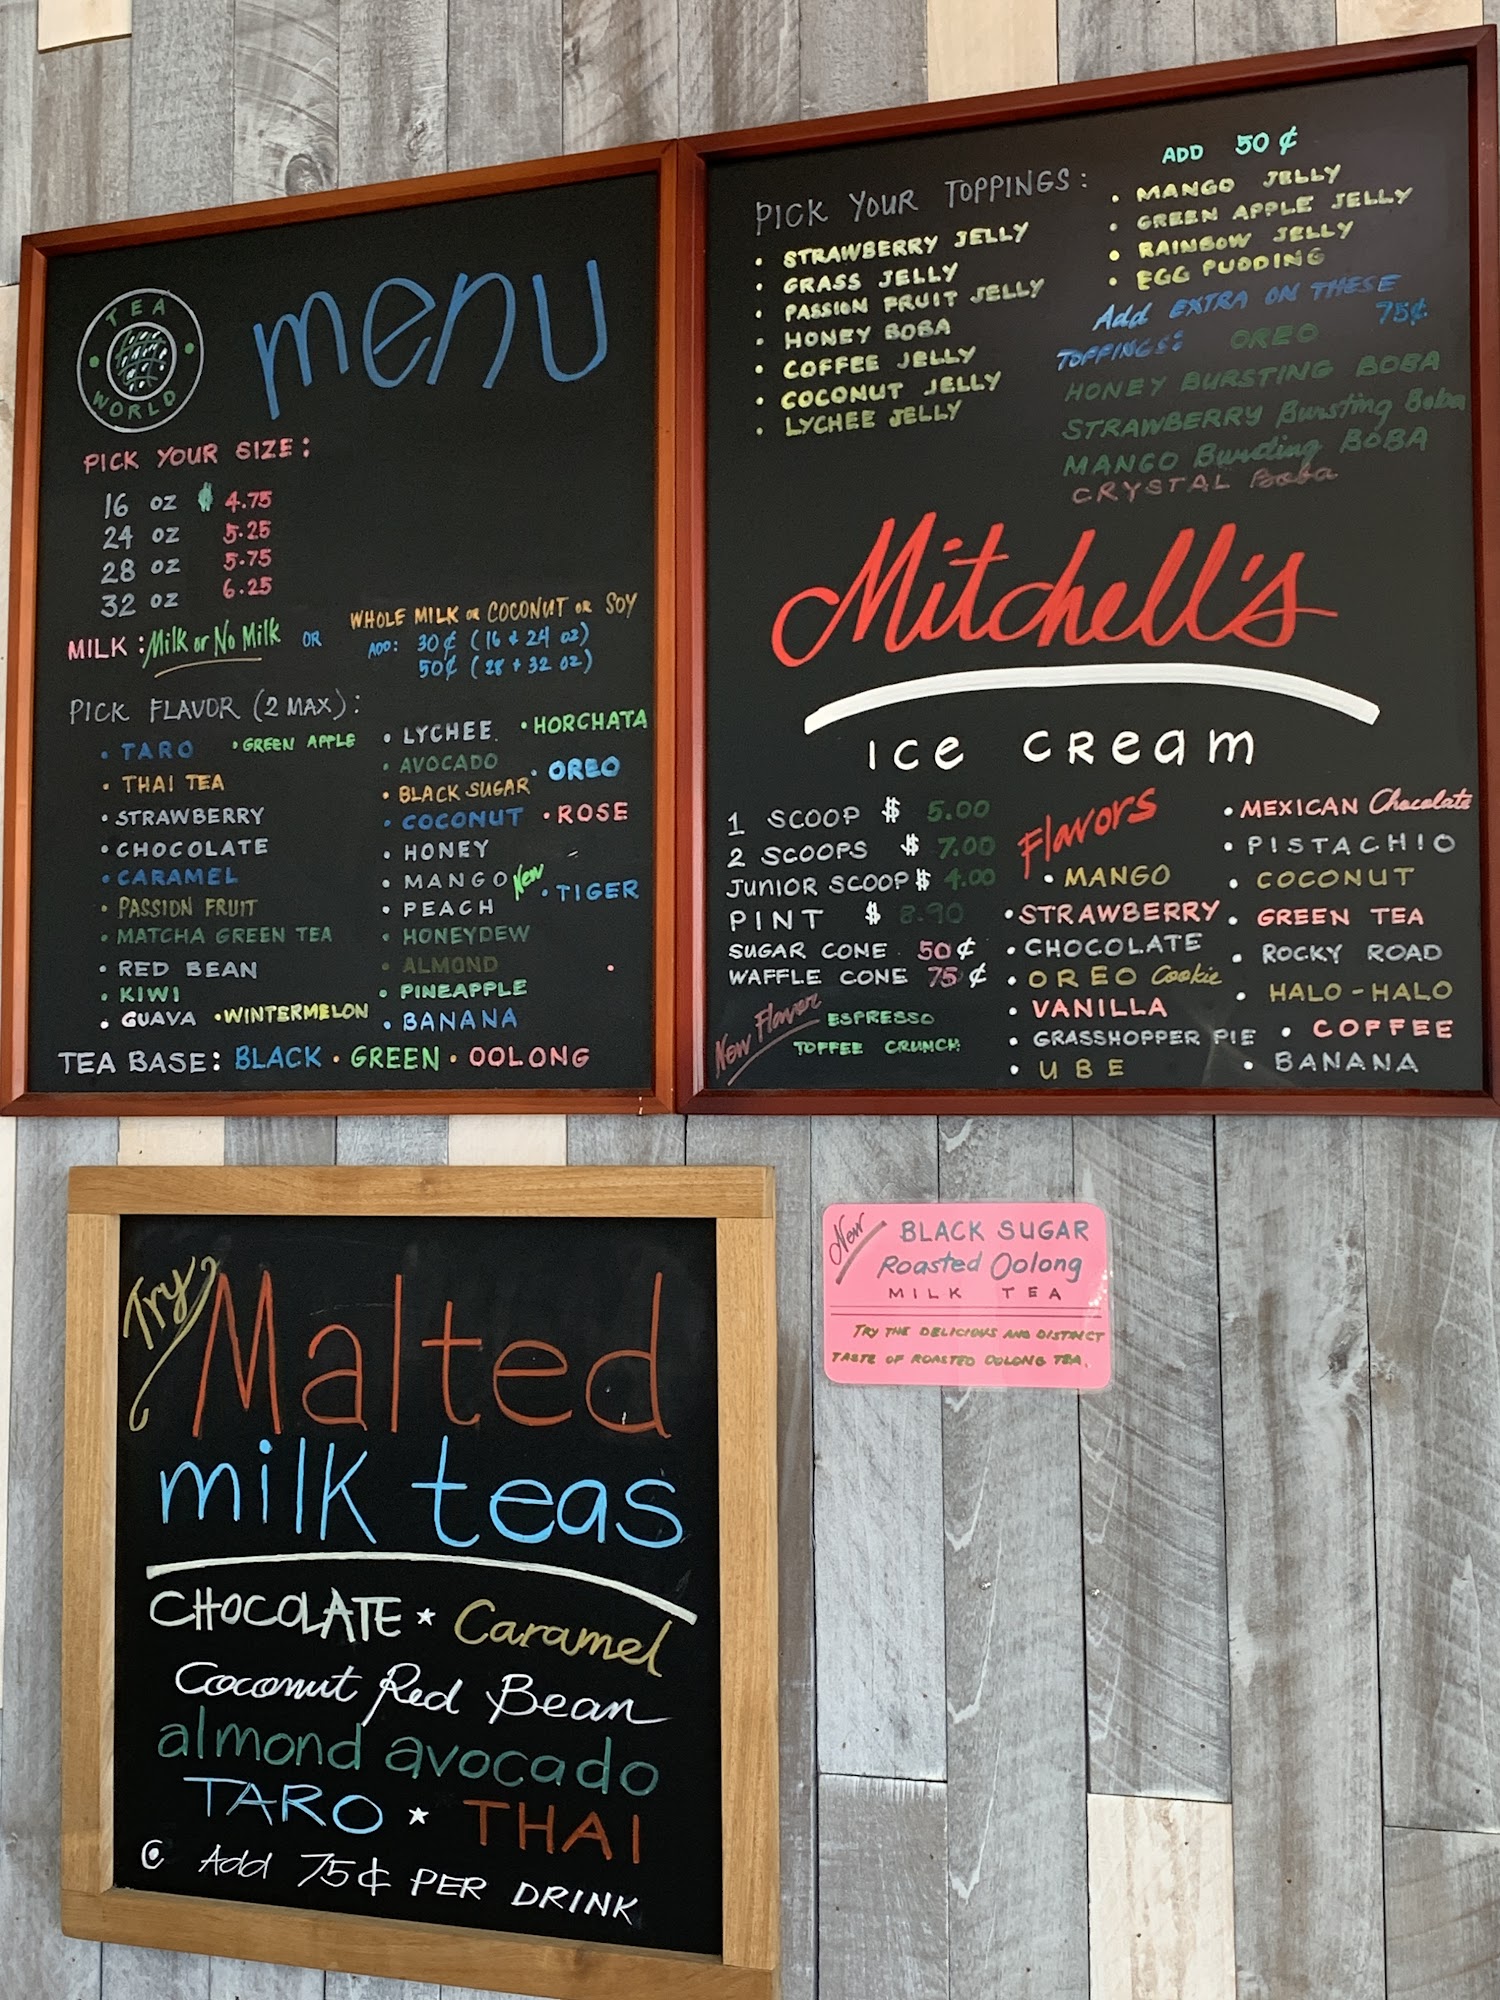 TEA
WORLD
menu
PICK YOUR SIZE:
16 oz $ 4.75
24 oz 5.25
28 oz 5.75
32 oz 6.25
MILK: Milk or No Milk OR WHOLE MILK OR COCONUT OR SOY
ADD: 30¢ (16 + 24 oz)
50¢ (28 + 32 oz)
PICK FLAVOR (2 MAX):
• TARO • GREEN APPLE
• THAI TEA
• STRAWBERRY
• CHOCOLATE
• CARAMEL
• PASSION FRUIT
• MATCHA GREEN TEA
• RED BEAN
• KIWI
• GUAVA • WINTERMELON
• LYCHEE • HORCHATA
• AVOCADO
• BLACK SUGAR • OREO
• COCONUT • ROSE
• HONEY
• MANGO New • TIGER
• PEACH
• HONEYDEW
• ALMOND
• PINEAPPLE
• BANANA
TEA BASE: BLACK • GREEN • OOLONG
PICK YOUR TOPPINGS:
• STRAWBERRY JELLY
• GRASS JELLY
• PASSION FRUIT JELLY
• HONEY BOBA
• COFFEE JELLY
• COCONUT JELLY
• LYCHEE JELLY
ADD 50¢
• MANGO JELLY
• GREEN APPLE JELLY
• RAINBOW JELLY
• EGG PUDDING
Add EXTRA ON THESE
TOPPINGS: OREO 75¢
HONEY BURSTING BOBA
STRAWBERRY Bursting Boba
MANGO Bursting BOBA
CRYSTAL Boba
Mitchell's
ICe CReam
1 SCOOP $ 5.00
2 SCOOPS $ 7.00
JUNIOR SCOOP $ 4.00
PINT $ 8.90
SUGAR CONE 50¢
WAFFLE CONE 75¢
New Flavor ESPRESSO
TOFFEE CRUNCH
Flavors
• MANGO
• STRAWBERRY
• CHOCOLATE
• OREO Cookie
• VANILLA
• GRASSHOPPER PIE
• UBE
• MEXICAN Chocolate
• PISTACHIO
• COCONUT
• GREEN TEA
• ROCKY ROAD
• HALO-HALO
• COFFEE
• BANANA
Try Malted
milk teas
CHOCOLATE ★ Caramel
Coconut Red Bean
almond avocado
TARO ★ THAI
Add 75¢ PER DRINK
New BLACK SUGAR
Roasted Oolong
MILK TEA
TRY THE DELICIOUS AND DISTINCT
TASTE OF ROASTED OOLONG TEA.